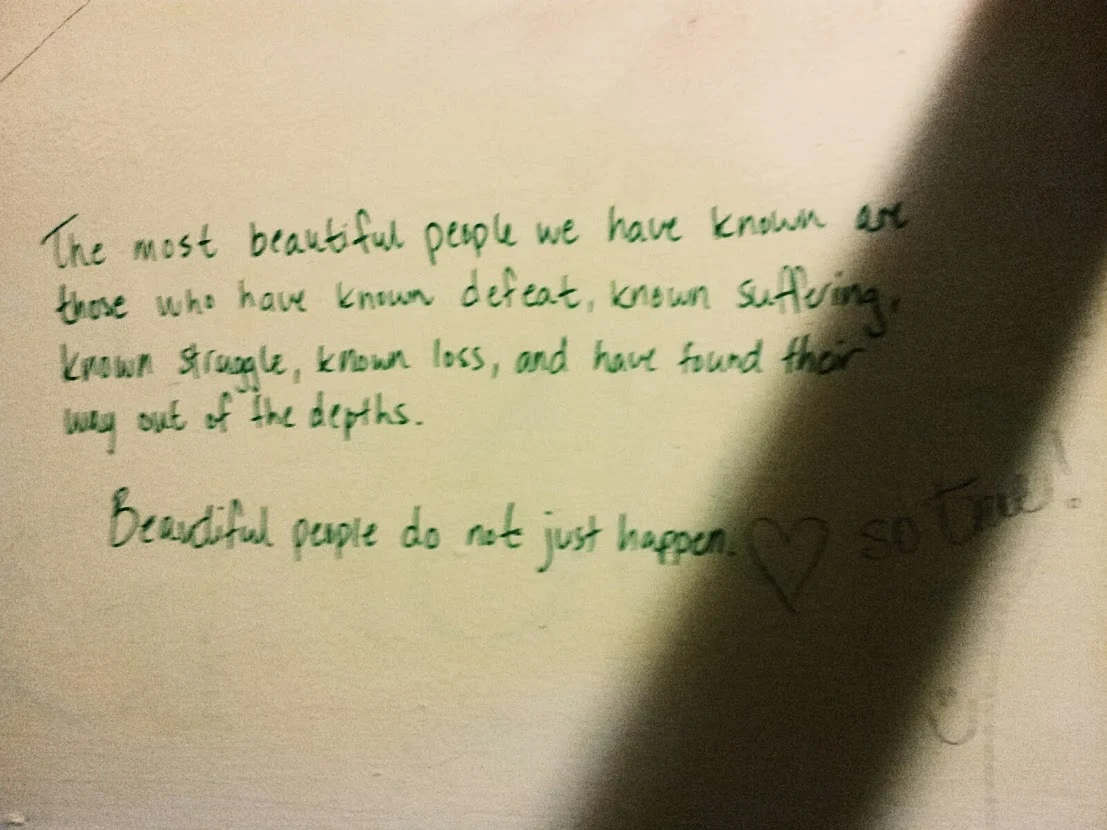 The most beautiful people we have known are
those who have known defeat, known suffering,
known struggle, known loss, and have found their
way out of the depths.
Beautiful people do not just happen. ♡ so true!